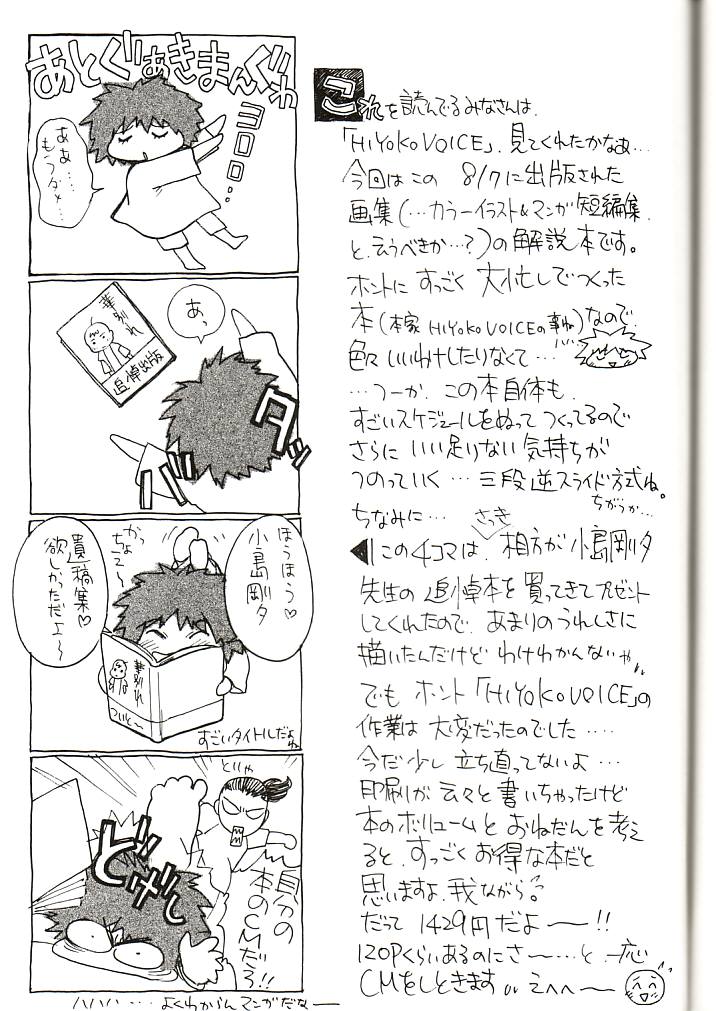 これを読んでるみなさんは、
「HiYoKo VOICE」、見てくれたかなぁ…
今回はこの 8/7に出版された
画集(…カラーイラスト&マンガ短編集、
と、云うべきか…?)の解説本です。
ホントにすっごく大忙しでつくった
本(本家 HiYoKo VOICEの事ね)なので、
色々いいわけしたりなくて…
…つーか、この本自体も、
すごいスケジュールをぬってつくってるので
さらにいい足りない気持ちが
つのっていく…三段逆スライド方式ね。
ちがうか…
ちなみに…
さっき
◀この4コマは、相方が小島剛夕
先生の追悼本を買ってきてプレゼント
してくれたので、あまりのうれしさに
描いたんだけどわけわかんないや
でも ホント「HiYoKo VOICE」の
作業は大変だったのでした…
今だ少し立ち直ってないよ…
印刷が云々と書いちゃったけど
本のボリュームとおねだんを考え
ると、すっごくお得な本だと
思いますよ、我ながら。
だって 1429円だよ〜!!
120Pくらいあるのにさ〜…と、一応
CMをしときます えへへ〜
あとぐぁきまんぐゎ
ヨロロ…
ああ…
もうダメ…
あっ
華別れ
追悼出版
バッ
タッ
ほうほう♡
小島剛夕
かっちょえ〜
遺稿集♡
欲しかっただよ〜
華別れ
すごいタイトルだよね
どいや
どげし
自分の
本のCMだろ!!
ハハハ…よくわからんマンガだな〜